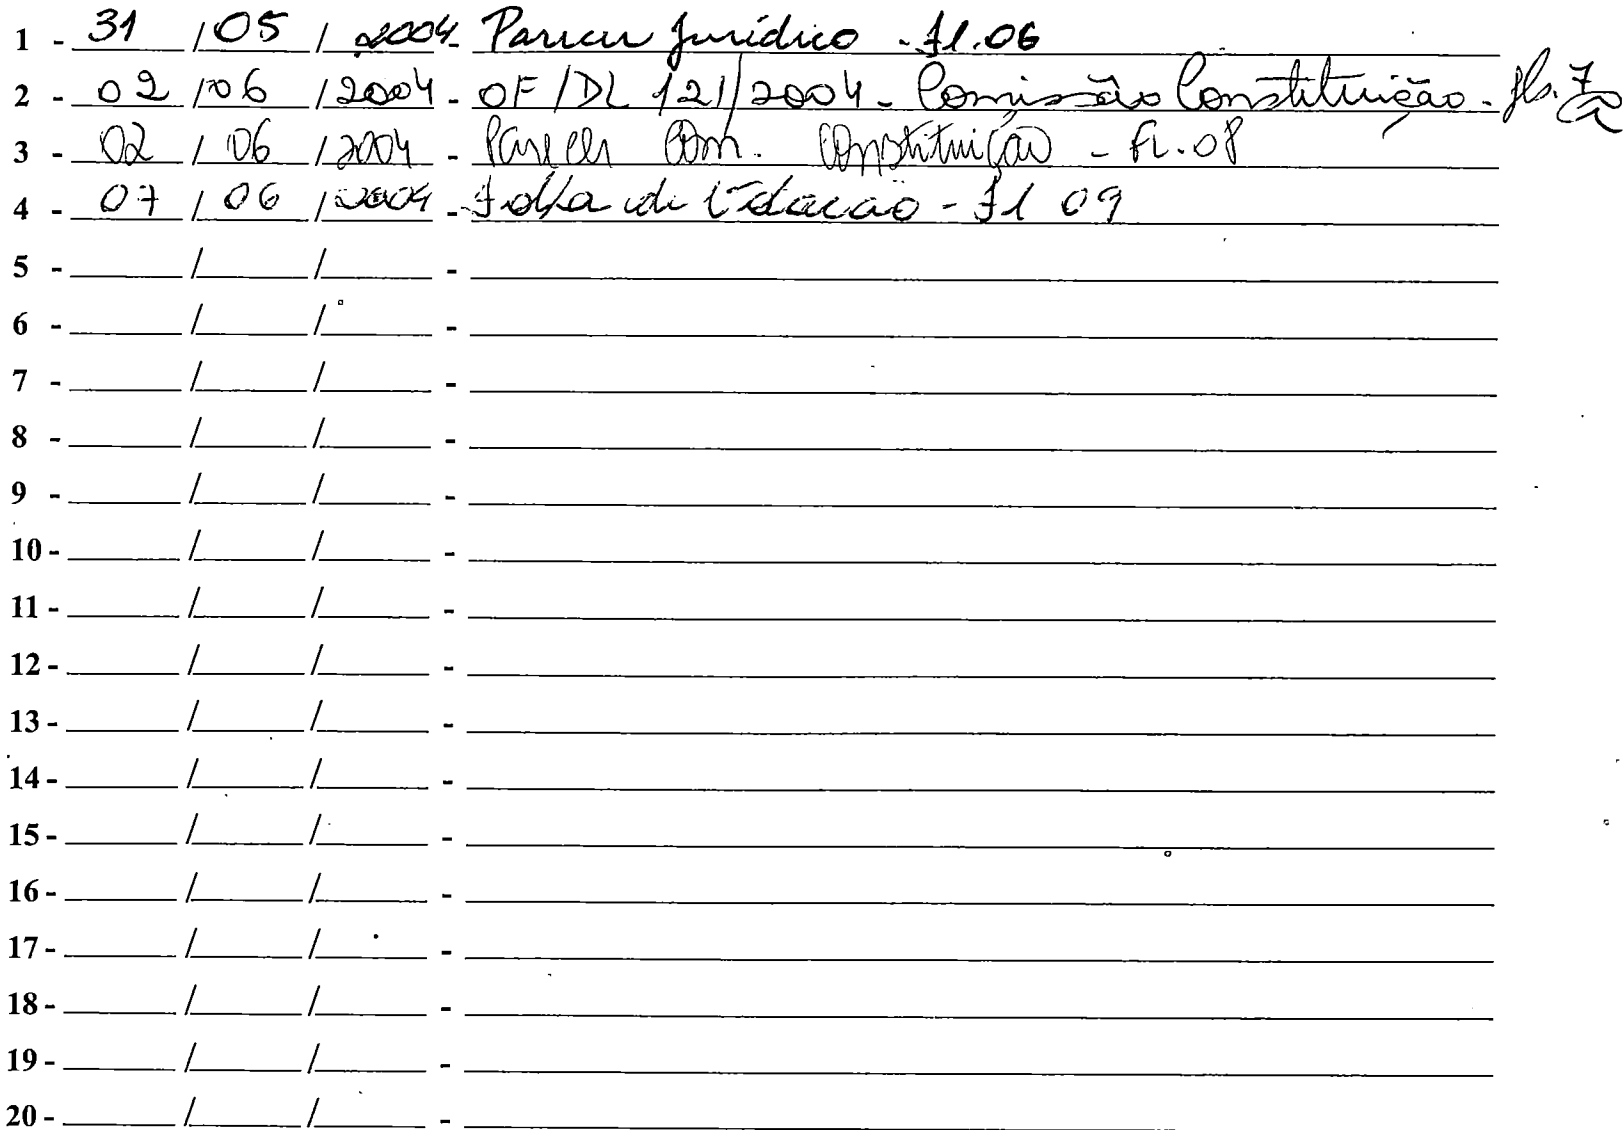 1 - 31 / 05 / 2004 - Parecer Jurídico - fl. 06
2 - 02 / 06 / 2004 - OF/DL 121/2004 - Comissão Constituição - fls. 7
3 - 02 / 06 / 2004 - Parecer Com. Constituição - fl. 08
4 - 07 / 06 / 2004 - Folha de Votação - fl 09
5 - ______ / ______ / ______ - ______
6 - ______ / ______ / ______ - ______
7 - ______ / ______ / ______ - ______
8 - ______ / ______ / ______ - ______
9 - ______ / ______ / ______ - ______
10 - ______ / ______ / ______ - ______
11 - ______ / ______ / ______ - ______
12 - ______ / ______ / ______ - ______
13 - ______ / ______ / ______ - ______
14 - ______ / ______ / ______ - ______
15 - ______ / ______ / ______ - ______
16 - ______ / ______ / ______ - ______
17 - ______ / ______ / ______ - ______
18 - ______ / ______ / ______ - ______
19 - ______ / ______ / ______ - ______
20 - ______ / ______ / ______ - ______